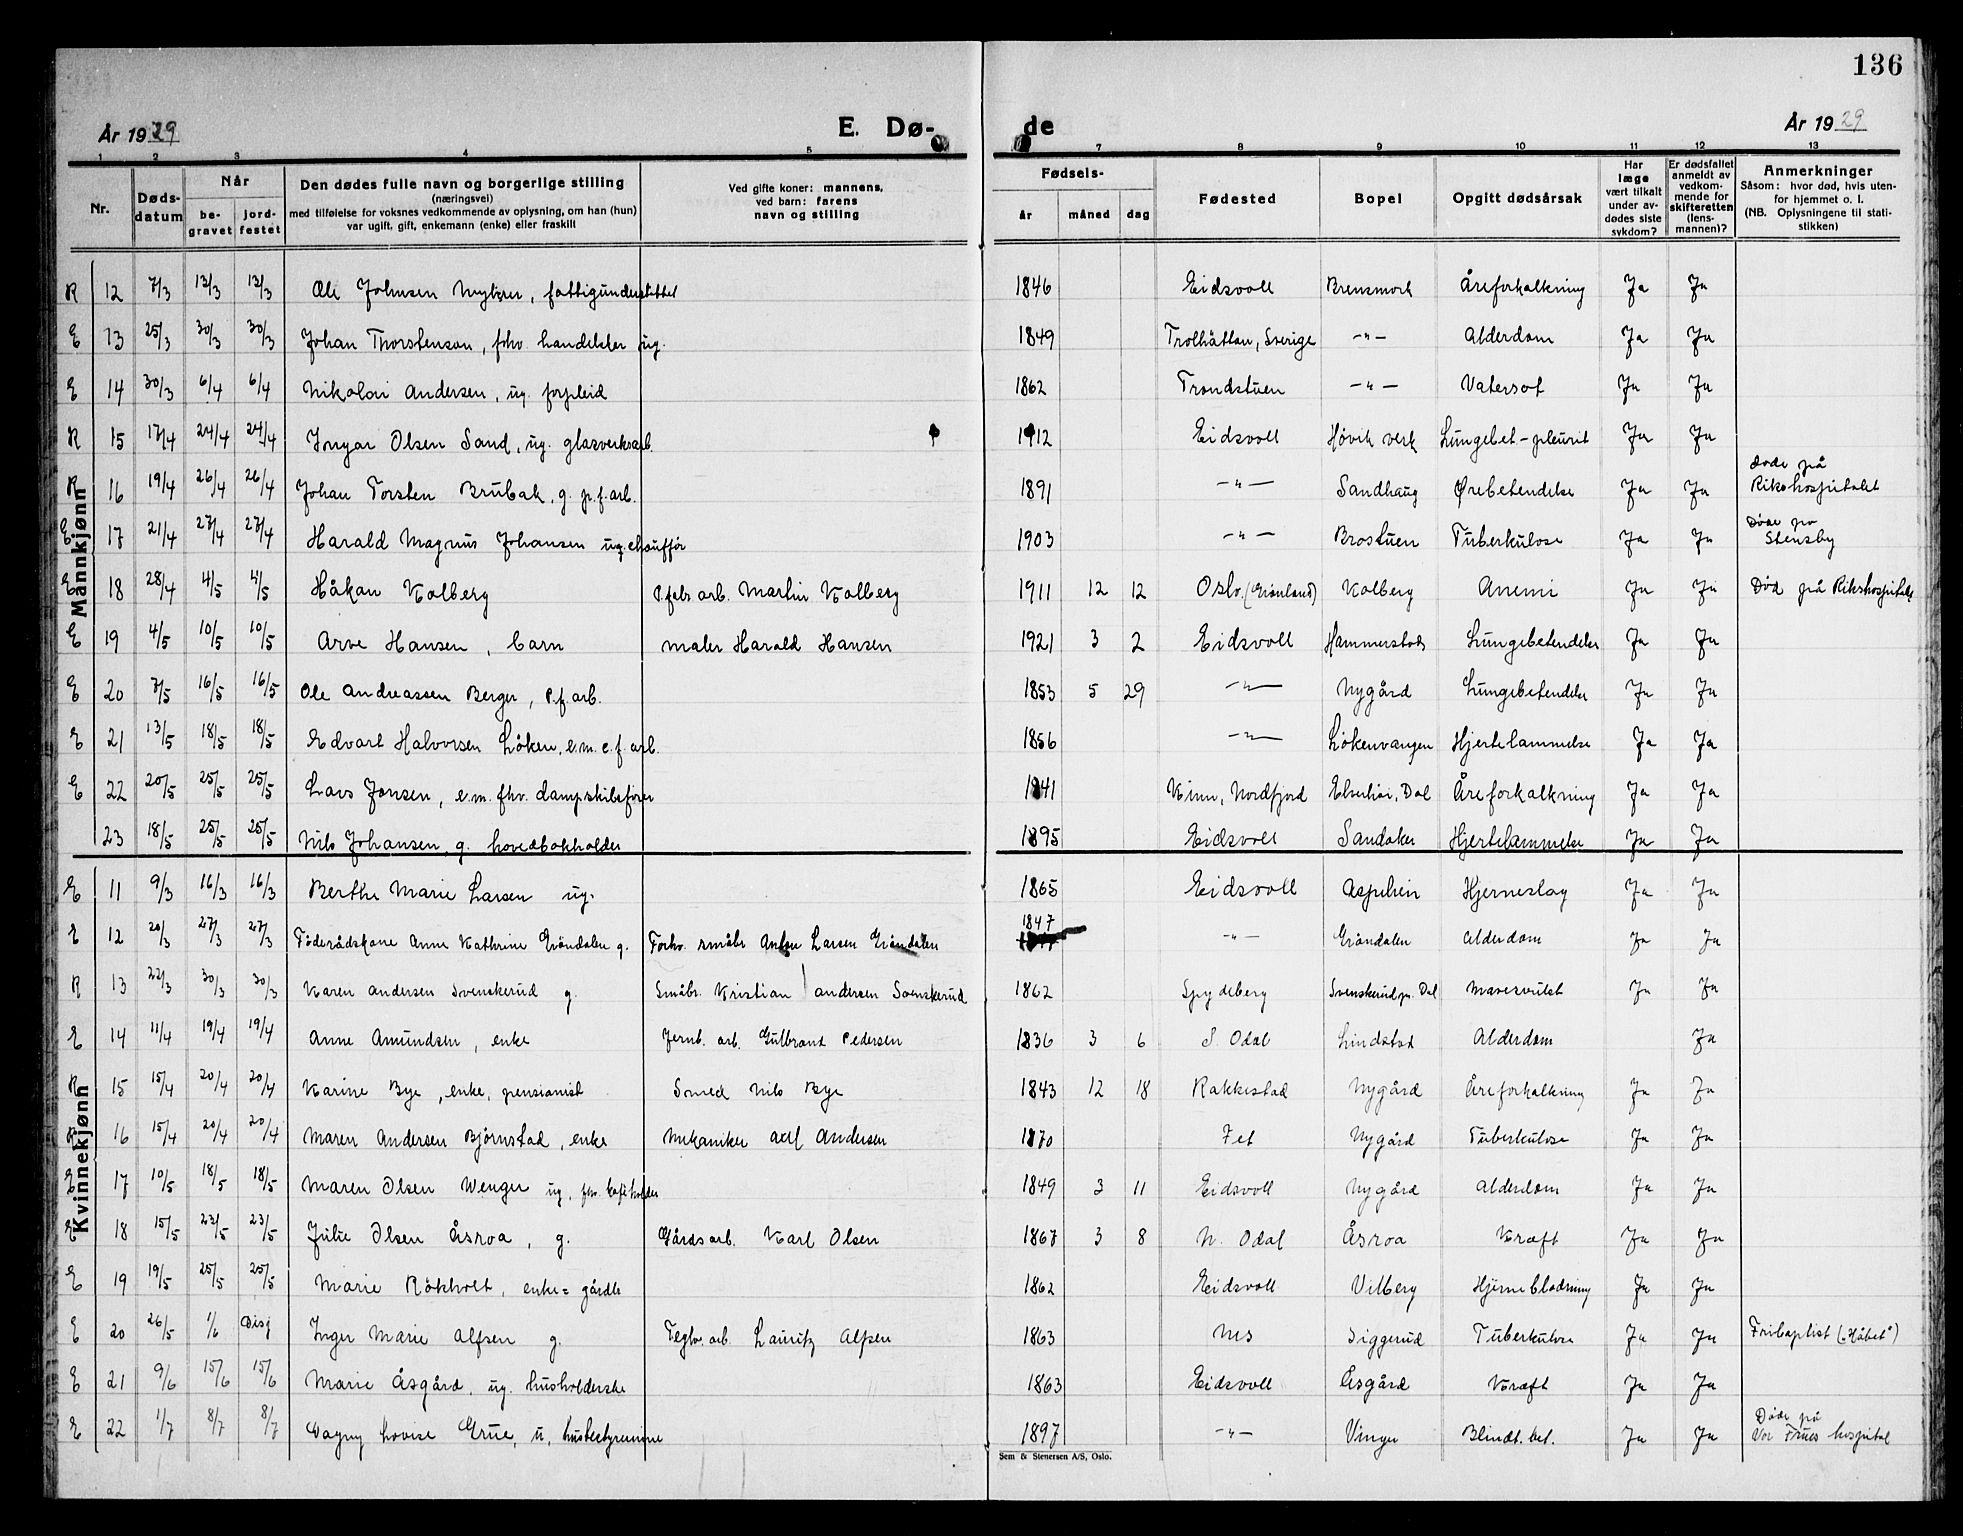 136
År 1929 E. Dø- de År 1929
1 2 3 4 5 7 8 9 10 11 12 13
Nr. Døds-datum Når be-gravet jord-festet Den dødes fulle navn og borgerlige stilling (næringsvei) med tilføielse for voksnes vedkommende av oplysning, om han (hun) var ugift, gift, enkemann (enke) eller fraskill Ved gifte koner: mannens, ved barn: farens navn og stilling Fødsels- år måned dag Fødested Bopel Opgitt dødsårsak Har læge vært tilkalt under av-dødes siste sykdom? Er dødsfallet anmeldt av vedkom-mende for skifteretten (lens-mannen)? Anmerkninger Såsom: hvor død, hvis uten-for hjemmet o. l. (NB. Oplysningene til stati-stikken)
Mannkjønn
R 12 7/3 13/3 13/3 Ole Johnsen Nybrer, fattigunderstøttet 1846 Eidsvoll Brensmork Åreforkalkning Ja Ja
E 13 25/3 30/3 30/3 Johan Thorstenson, fhv. handelsbr. ug. 1849 Trolhättan, Sverige -"- Alderdom Ja Ja
E 14 30/3 6/4 6/4 Nikolai Andersen, ug. forpleid 1862 Trondstuen -"- Vatersot Ja Ja
R 15 17/4 24/4 24/4 Ingar Olsen Sand, ug. glasverksarb. 1912 Eidsvoll Høvik verk Lungebet-pleurit Ja Ja
R 16 19/4 26/4 26/4 Johan Torsten Brubak, g. p.f.arb. 1891 -"- Sandhaug Ørebetendelse Ja Ja døde på Rikshospitalet
E 17 21/4 27/4 27/4 Harald Magnus Johansen ug. chauffør 1903 -"- Brostuen Tuberkulose Ja Ja Døde på Stensby
E 18 28/4 4/5 4/5 Håkan Kolberg P.fabr arb. Martin Kolberg 1911 12 12 Oslo (Grønland) Kolberg Anemi Ja Ja Død på Rikshospitalet
E 19 4/5 10/5 10/5 Arve Hansen, barn maler Harald Hansen 1921 3 2 Eidsvoll Hammerstad Lungebetendelse Ja Ja
E 20 7/5 16/5 16/5 Ole Andreassen Berger, P.f.arb. 1853 5 29 -"- Nygård Lungebetendelse Ja Ja
E 21 13/5 18/5 18/5 Edvart Halvorsen Løken, e.m. c.f. arb. 1856 -"- Løkenvangen Hjertelammelse Ja Ja
E 22 20/5 25/5 25/5 Lars Jensen, e.m. fhv. dampskibsfører 1841 Kinn, Nordfjord Elverhøi, Dal Åreforkalkning Ja Ja
23 18/5 25/5 25/5 Nils Johansen, g. hovedbokholder 1895 Eidsvoll Sandaker Hjertelammelse Ja Ja
Kvinnekjønn
E 11 9/3 16/3 16/3 Berthe Marie Larsen ug. 1865 Eidsvoll Aspeheim Hjerneslag Ja Ja
E 12 20/3 27/3 27/3 Føderådskone Anne Kathrine Grøndalen g. Forhv. småbr. Anton Larsen Grøndalen 1847 -"- Grøndalen Alderdom Ja Ja
R 13 22/3 30/3 30/3 Karen Andersen Svenskerud g. Småbr. Kristian Andersen Svenskerud 1862 Spydeberg Svenskerud pr. Dal Mavesvulst Ja Ja
E 14 11/4 19/4 19/4 Anne Amundsen, enke Jernb. arb. Gulbrand Pedersen 1836 3 6 S. Odal Lindstad Alderdom Ja
R 15 15/4 20/4 20/4 Karine Bye, enke, pensionist Smed Nils Bye 1843 12 18 Rakkestad Nygård Åreforkalkning Ja Ja
R 16 15/4 20/4 20/4 Maren Andersen Bjørnstad, enke Mekaniker Axel Andersen 1870 Fet Nygård Tuberkulose Ja Ja
E 17 10/5 18/5 18/5 Maren Olsen Wenger ug, fhv. kafeholder 1849 3 11 Eidsvoll Nygård Alderdom Ja Ja
E 18 15/5 23/5 23/5 Julie Olsen Åsroa, g. Gårdsarb. Karl Olsen 1867 3 8 N. Odal Åsroa Kræft Ja Ja
E 19 19/5 25/5 25/5 Marie Røkholt, enke= gårdbr 1862 Eidsvoll Vilberg Hjerneblødning Ja Ja
E 20 26/5 1/6 Disf Inger Marie Alfsen g. Teglv. arb. Lauritz Alfsen 1863 Nes Siggerud Tuberkulose Ja Ja Fribaptist ("Håbet")
E 21 9/6 15/6 15/6 Marie Åsgård, ug. husholderske 1863 Eidsvoll Åsgård Kræft Ja Ja
E 22 1/7 8/7 8/7 Dagny Lovise Grue, u, husbestyrerinne 1897 -"- Vinger Blindt. bet. Ja Ja Døde på Vor Frues hospital
Sem & Stenersen A/S, Oslo.